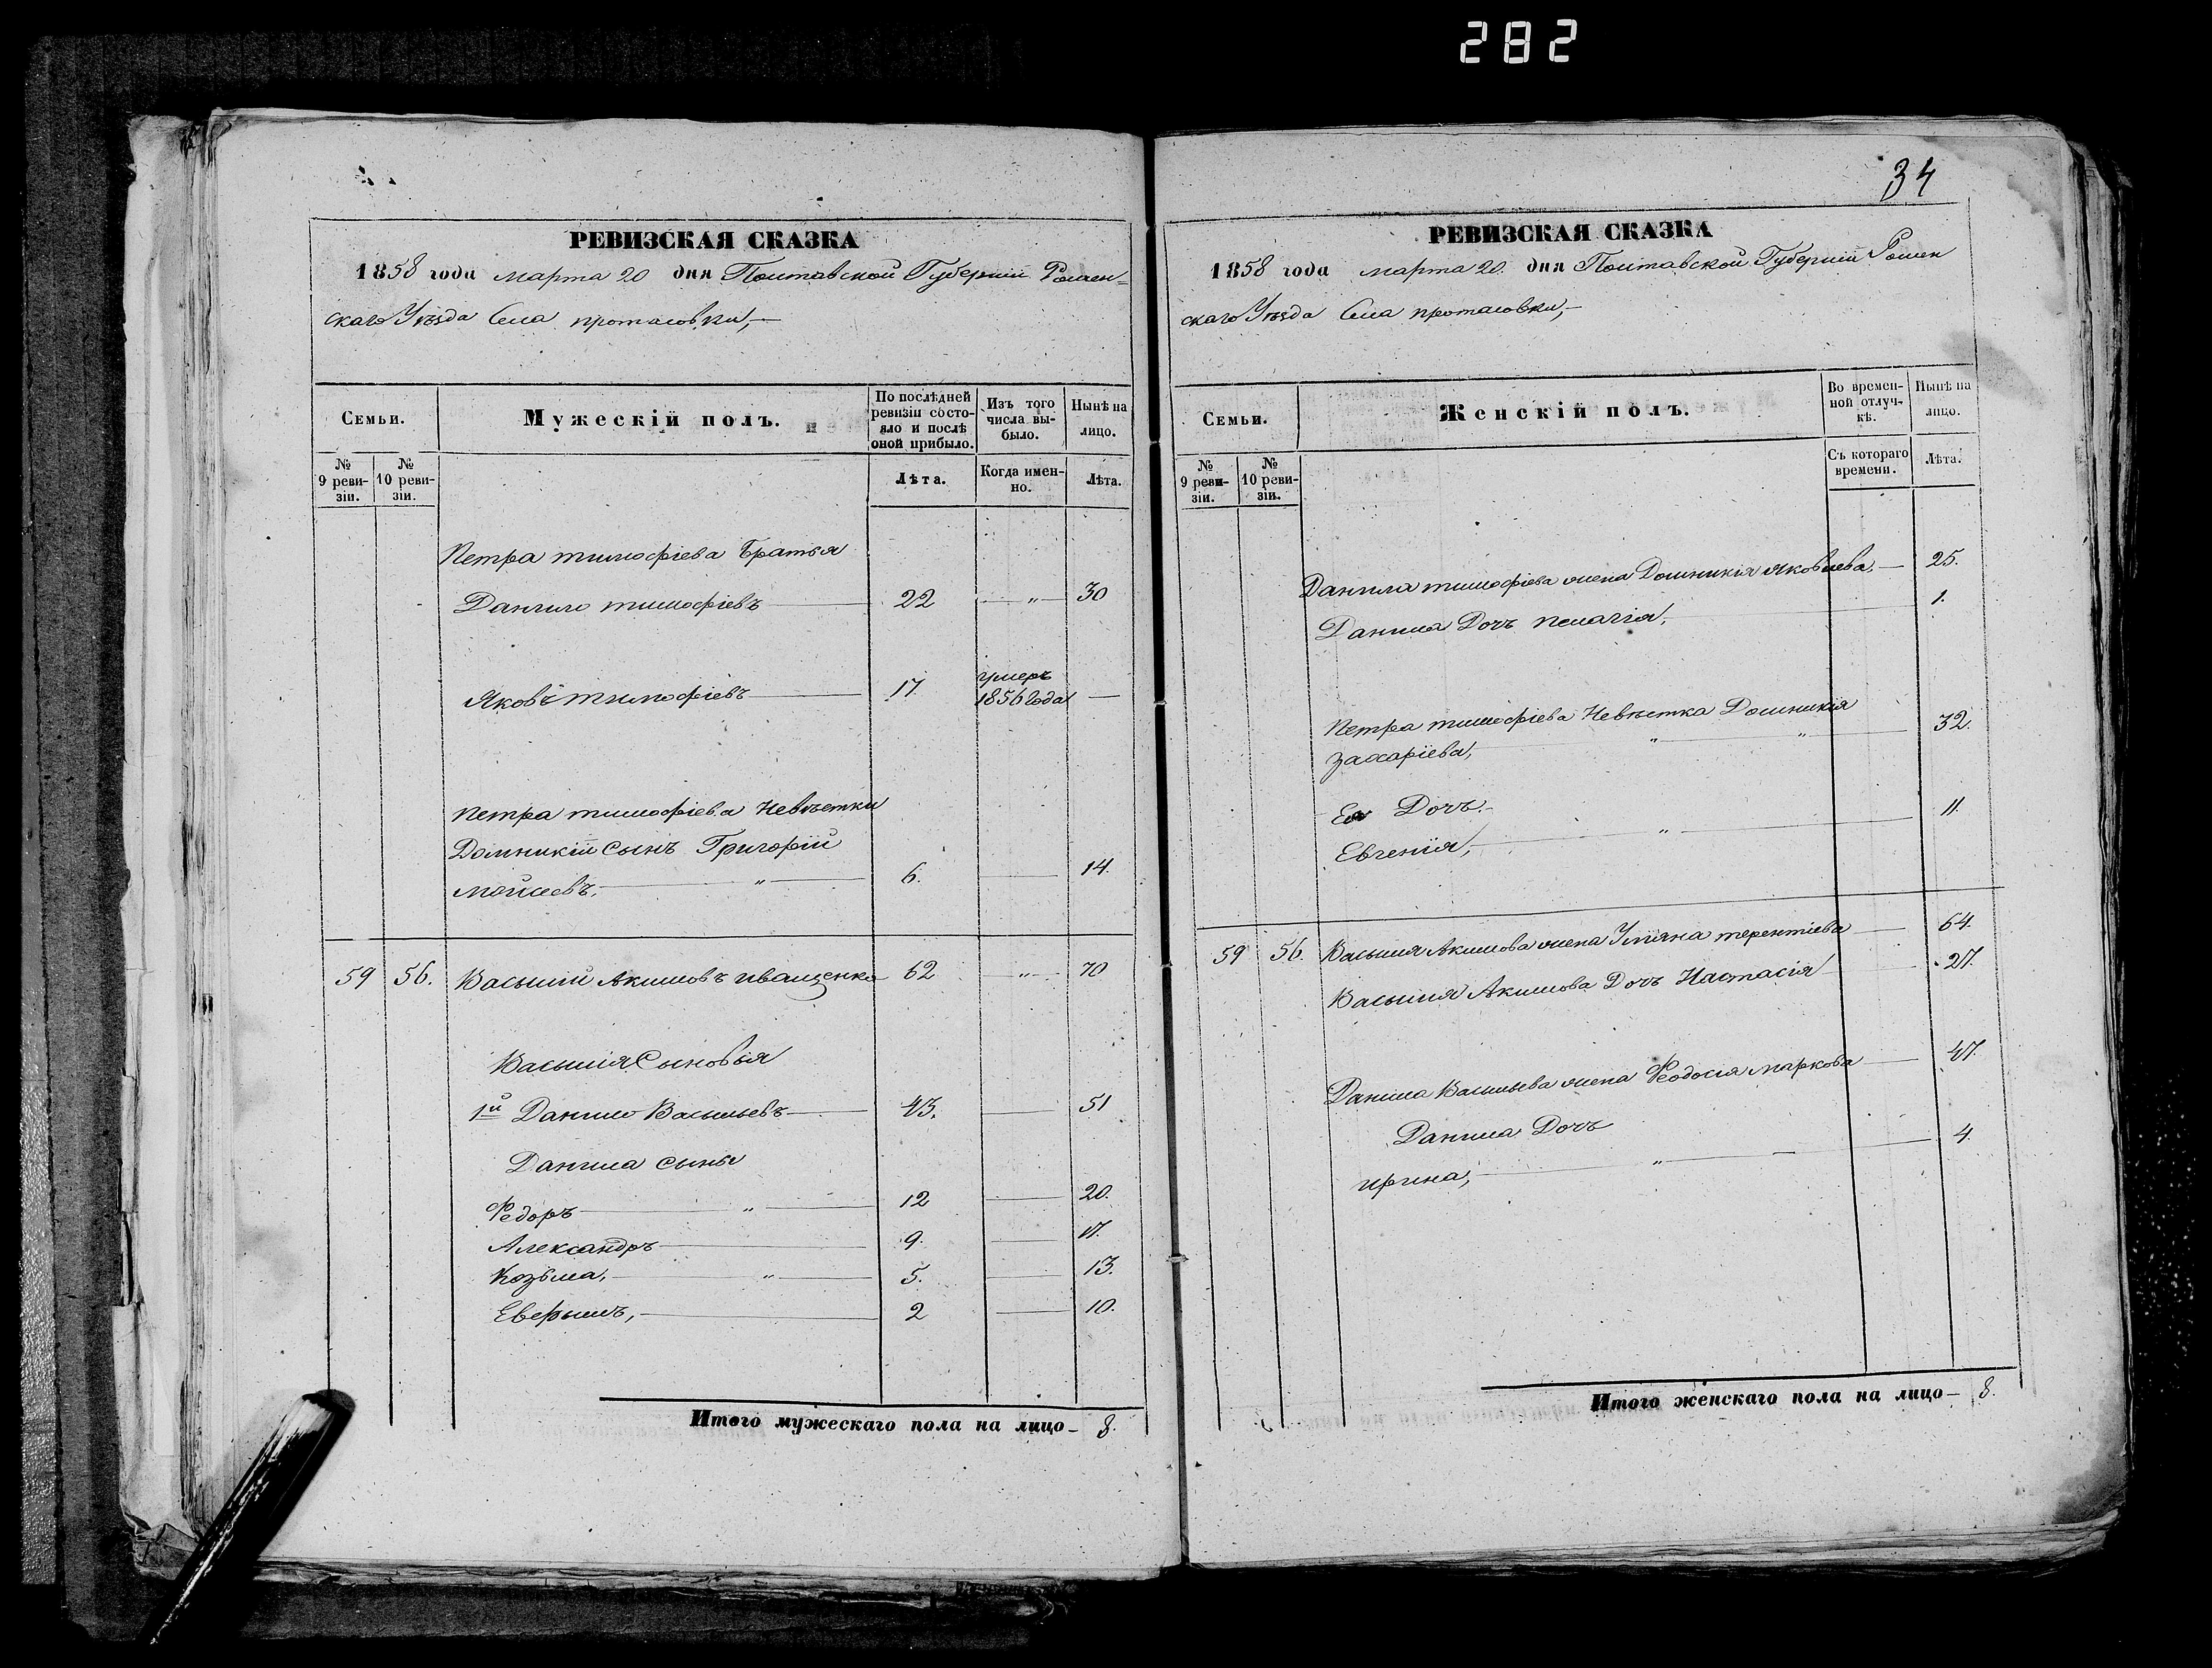 282
РЕВИЗСКАЯ СКАЗКА
1858 года марта 20 дня Полтавской Губерніи Ромен=
скаго Уѣзда Села протасовки,—
Семьи.
Мужескій полъ.
По послѣдней ревизіи состо-
яло и послѣ оной прибыло.
Изъ того числа вы-
было.
Нынѣ на лицо.
№ 9 реви-
зіи.
№ 10 реви-
зіи.
Лѣта.
Когда имен-
но.
Лѣта.
Петра тимофіева Братья
Данило тимофіевъ 22 — " — 30
Яковъ тимофіевъ 17. умеръ
1856 года —
Петра тимофіева Невѣстки
Домникіи сынъ Григорій
Мойсеевъ, " 6. — 14.
59 56. Василій Акимовъ иващенко 62 — " — 70
Василія Сыновья
1й Данило Васильевъ 43. — 51
Данила сыны
Федоръ " 12 — 20.
Александръ 9. — 17.
Козьма, " 5. — 13.
2 — 10.
Итого мужескаго пола на лицо — 8.
34
РЕВИЗСКАЯ СКАЗКА
1858 года марта 20. дня Полтавской Губерніи Ромен
скаго Уѣзда Села протасовки,—
Семьи.
Женскій полъ.
Во времен-
ной отлуч-
кѣ.
Нынѣ на лицо.
№ 9 реви-
зіи.
№ 10 реви-
зіи.
Съ котораго времени.
Лѣта.
Данила тимофіева жена Домникія яковлева, — 25.
Данила Дочъ пелагія, 1.
Петра тимофіева Невѣстка Домникія
захаріева, " " 32.
Ея Дочъ.
Евгенія, " 11.
59 56. Василія Акимова жена Уліяна терентіева — 64.
Василія Акимова Дочъ Настасія 27.
Данила Васильева жена Феодосія маркова — 47.
Данила Дочъ
ирина, " 4.
Итого женскаго пола на лицо — 8.